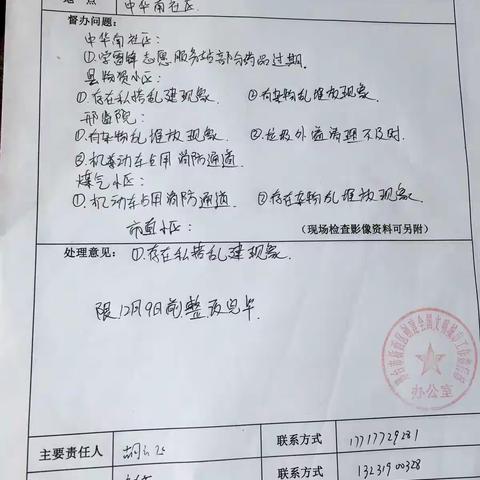 地 点 中华南社区
督办问题：
中华南社区：
①学雷锋志愿服务站部分药品过期.
县物资小区：
①存在私搭乱建现象. ②有杂物乱堆放现象.
邢台医院：
①有杂物乱堆放现象 ②垃圾外溢清理不及时.
③机动车占用消防通道
煤气小区：
①机动车占用消防通道. ②存在杂物乱堆放现象
市直小区：
（现场检查影像资料可另附）
处理意见： ①.存在私搭乱建现象.
限12月9日前整改完毕.
办公室
主要责任人 胡 联系方式 17717729281
联系方式 13231900328